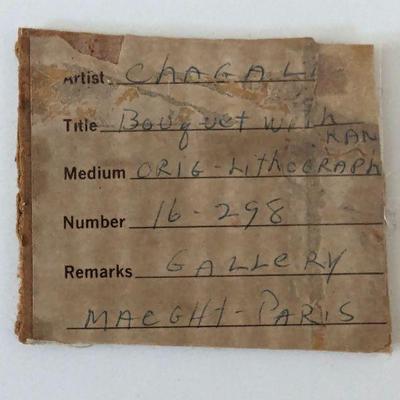 Artist CHAGALL
Title Bouquet with
HAN
Medium ORIG-LithOGRAPH
Number 16-298
Remarks GALLERY
MAEGHt-PARIS